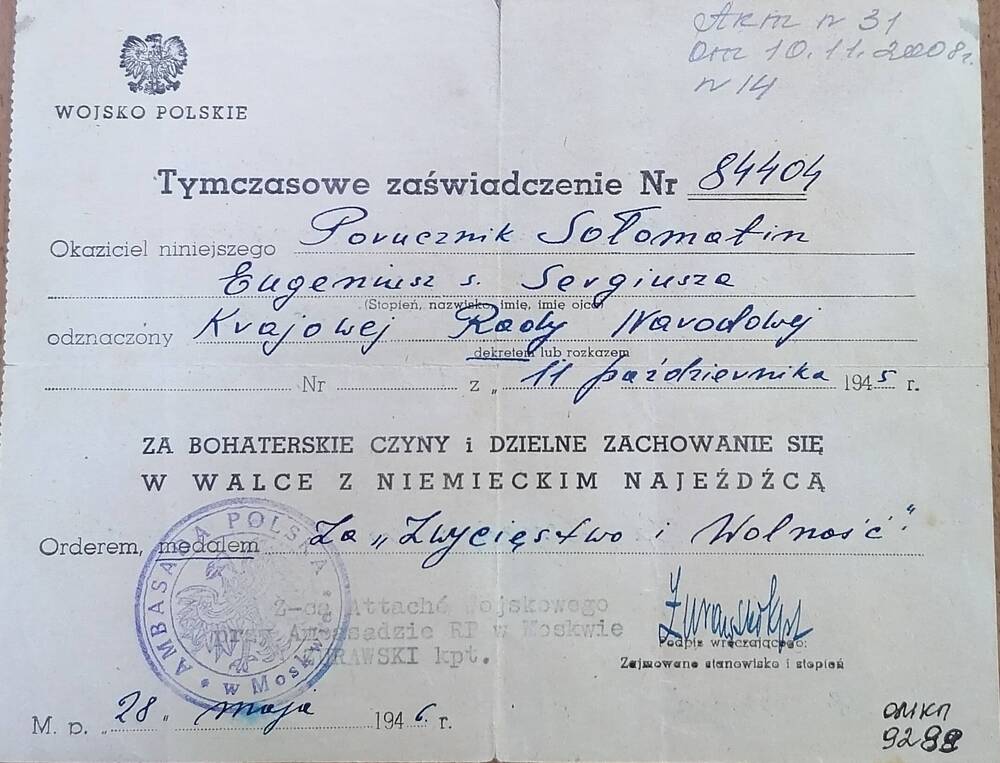 Акт N 31
от 10.11.2008г.
N 14
WOJSKO POLSKIE
Tymczasowe zaświadczenie Nr 84404
Okaziciel niniejszego Porucznik Sołomatin
Eugeniusz s. Sergiusza
(Stopień, nazwisko, imię, imię ojca)
odznaczony Krajowej Rady Narodowej
dekretem lub rozkazem
Nr z „ 11 października 1945 r.
ZA BOHATERSKIE CZYNY i DZIELNE ZACHOWANIE SIĘ
W WALCE Z NIEMIECKIM NAJEŹDŹCĄ
Orderem, medalem Za „Zwycięstwo i Wolność".
AMBASADA POLSKA
w Moskwie
Z-ca Attaché Wojskowego
przy Ambasadzie RP w Moskwie
ŻURAWSKI kpt.
Żurawski kpt
Podpis wręczającego:
Zajmowane stanowisko i stopień
M. p. „28" maja 1946. r.
ОМКП
9288